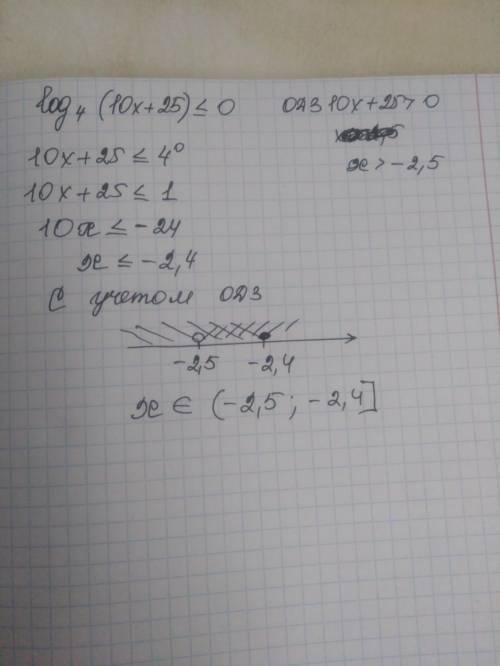 log₄ (10x+25) ≤ 0
ОДЗ 10x+25 > 0
x > -2,5
10x+25 ≤ 4⁰
10x+25 ≤ 1
10x ≤ -24
x ≤ -2,4
С учетом ОДЗ
-2,5 -2,4
x ∈ (-2,5 ; -2,4]